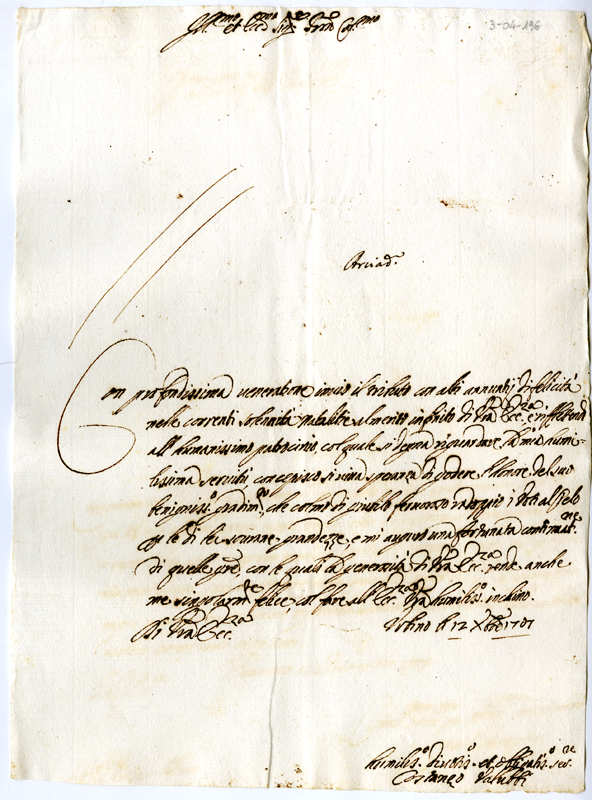 Ill.mo et Ecc.mo Sig.re P.rone Col.mo
3-04-196
Con profondissima veneratione invio il tributo con alti annuntij di felicità
nelle correnti solennità natalitie al merito infinito di V.ra Ecc.za, e riflettendo
all'humanissimo patrocinio, col quale si degna riguardare la mia humi-
lissima servitù, concepisco vivina speranza di godere l'honore del suo
benigniss.o gradim.to, che colmo di giubilo
le di lei sourane grandezze, e mi auguro una fortunata confirmat.ne
di quelle gra͂e, con le quali la generosità di V.ra Ecc.za rende anche
me singolarm.te felice, col fare all'Ecc.za V.ra humiliss.o inchino.
Di V.ra Ecc.za
Urbino li 12 Xbre 1701
humiliss.o divotis.o et obligatis.o ser.re
Costanzo